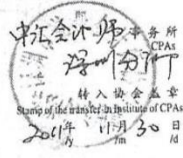 中汇会计师事务所
CPAs
深圳分所
CPAs
转入协会盖章
Stamp of the transfer-in Institute of CPAs
2011年 11月 30日
/y /m /d